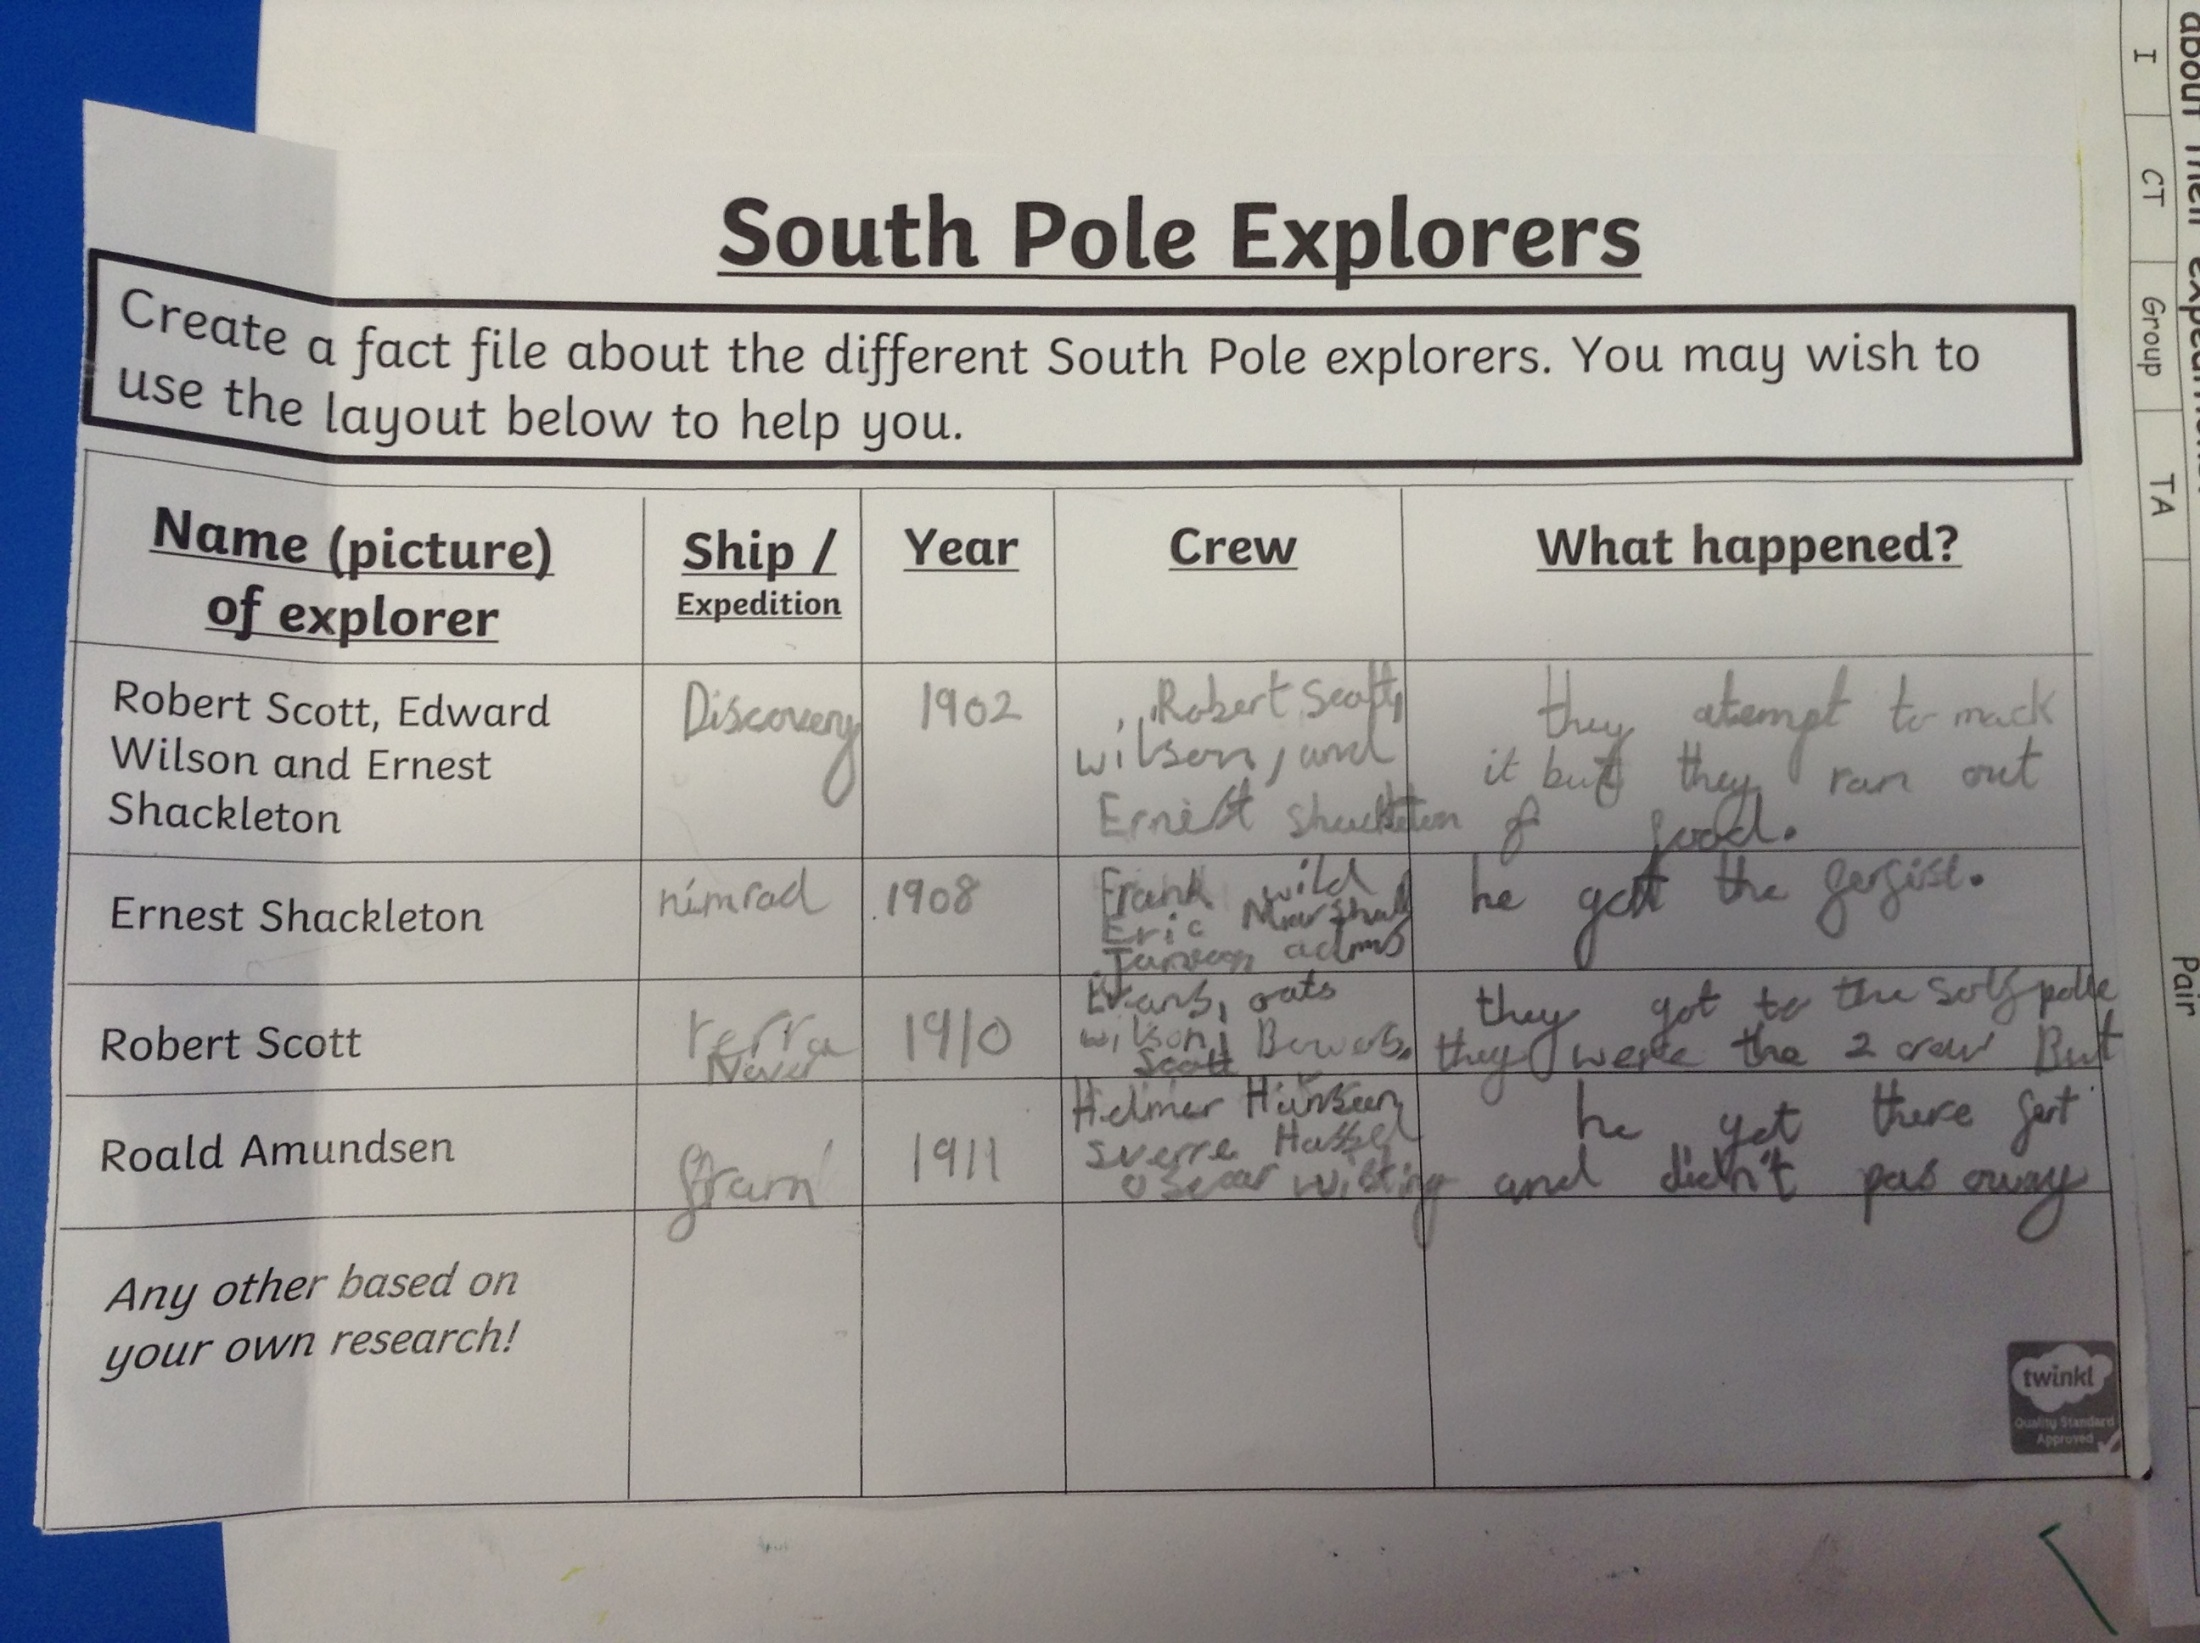 South Pole Explorers
Create a fact file about the different South Pole explorers. You may wish to
use the layout below to help you.
Name (picture)
of explorer
Ship /
Expedition
Year
Crew
What happened?
Robert Scott, Edward
Wilson and Ernest
Shackleton
Discovery
1902
Robert Scott,
wilson, and
Ernest Shackleton
they atempt to mack
it but they ran out
of food.
Ernest Shackleton
nimrod
1908
Frank wild
Eric Marshall
adms
he got the
Robert Scott
Terra
Nova
1910
Evans, oats
wilson, Bowers.
Scott
they got to the polle
they were the 2 crew But
Roald Amundsen
fram
1911
Helmer Hansen
sverre Hassel
oscar wisting
he get there
and didn't pas away
Any other based on
your own research!
twinkl
Quality Standard
Approved
I
CT
Group
TA
Pair
about their